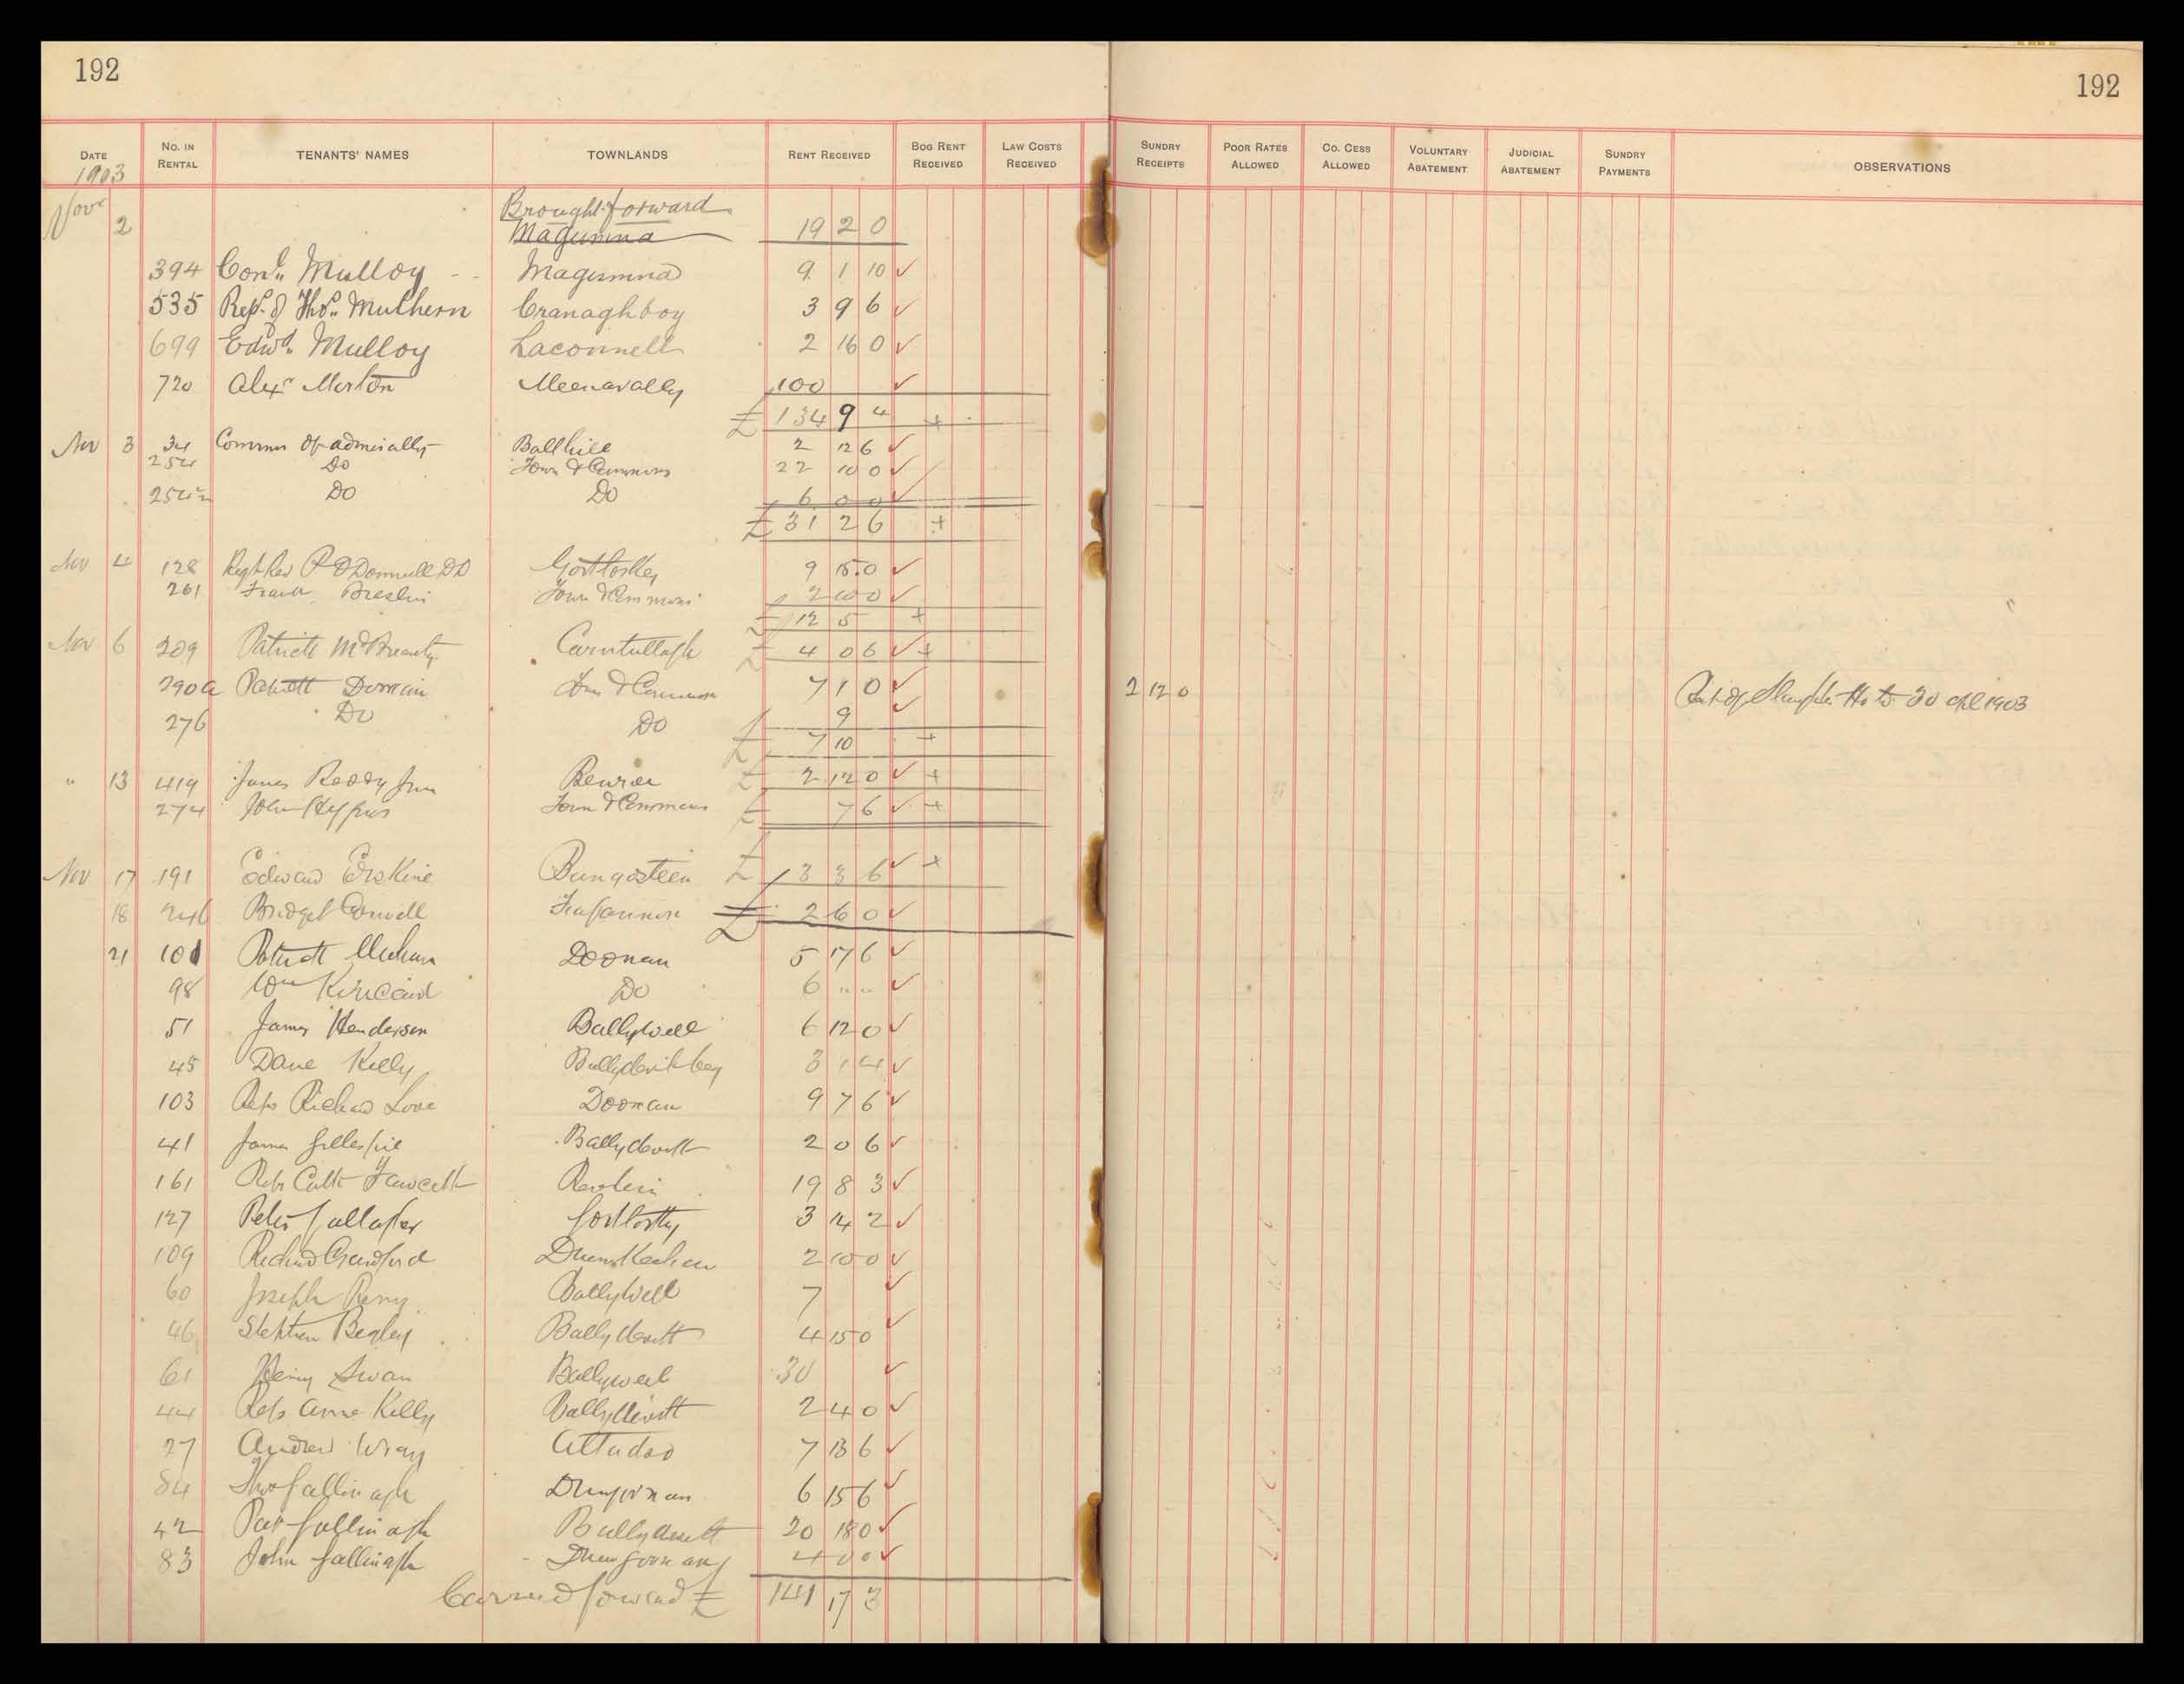 192
192
DATE No. IN RENTAL TENANTS' NAMES TOWNLANDS RENT RECEIVED BOG RENT RECEIVED LAW COSTS RECEIVED SUNDRY RECEIPTS POOR RATES ALLOWED CO. CESS ALLOWED VOLUNTARY ABATEMENT JUDICIAL ABATEMENT SUNDRY PAYMENTS OBSERVATIONS
1903
Brought forward
Nove 2 Magumna 19 2 0
394 Conl. Mulloy Magumna 9 1 10
535 Reps. of Thos. Mulhern Cranaghboy 3 9 6
699 Edwd. Mulloy Laconnell 2 16 0
720 Alexr Morton Meenavally 100
£ 134 9 4
Nov 3 34 Commrs of admiralty Ballhill 2 12 6
254 Do Town & Commons 22 10 0
254½ Do Do 6 0 0
£ 31 2 6
Nov 4 128 Right Rev P O'Donnell DD Gortlosky 9 15 0
261 Frank Breslin Town & Commons 2 10 0
£ 12 5
Nov 6 209 Patrick McBrearty Carntullagh £ 4 0 6
290a Patrick Town & Commons 7 1 0 2 12 0 to 30 Apl 1903
276 Do Do 9
£ 7 10
" 13 419 James Junr £ 2 12 0
274 John Town & Commons £ 7 6
Nov 17 191 Edward Erskine Bungosteen £ 3 3 6
18 246 Bridget £ 2 6 0
21 101 Patrick Meehan Doonan 5 17 6
98 Wm Kincaid Do 6 " "
51 James Henderson Ballyweel 6 12 0
45 Dane Kelly 3 1 4
103 Reps Richard Love Doonan 9 7 6
41 James Gillespie Ballydevitt 2 0 6
161 Reps Cuth Fawcett 19 8 3
127 Peter Gallagher Gortlosky 3 14 2
109 Richard Crawford Drumkeelan 2 10 0
60 Joseph Ballyweel 7
46 Stephen Begley Ballydevitt 4 15 0
61 Henry Swan Ballyweel 30
44 Reps Anne Kelly Ballydevitt 2 4 0
27 Andrew Wray 7 13 6
84 Thos Gallinagh Drumgorman 6 15 6
42 Pat Gallinagh Ballydevitt 20 18 0
83 John Gallinagh Drumgorman 4 0 0
Carried forward £ 141 17 3